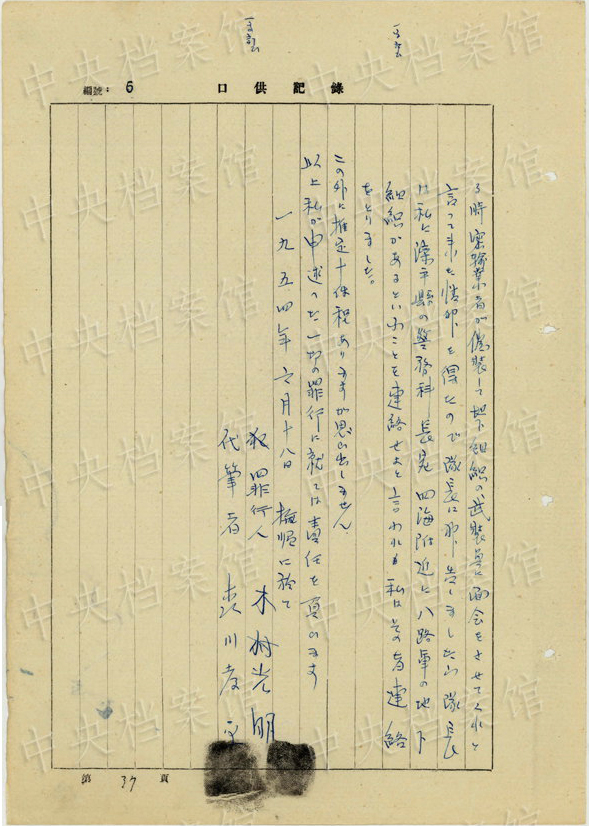 編號：6
口供記錄
る時密輸業者が偽装して地下組織の武装員に面会をさせてくれと
言って来た情報を得たので隊長に報告しましたら隊長
は私に灤平縣の警務科長宛四海附近に八路軍の地下
組織があるということを連絡せよと言われ私はその旨連絡
をとりました。
この外に推定十件程ありますが思い出しません。
以上私が申述べた一切の罪行に就ては責任を負います
一九五四年六月十八日 撫順に於て
犯罪行人 木村光明
代筆者 川孝
第 37 頁
中央档案馆